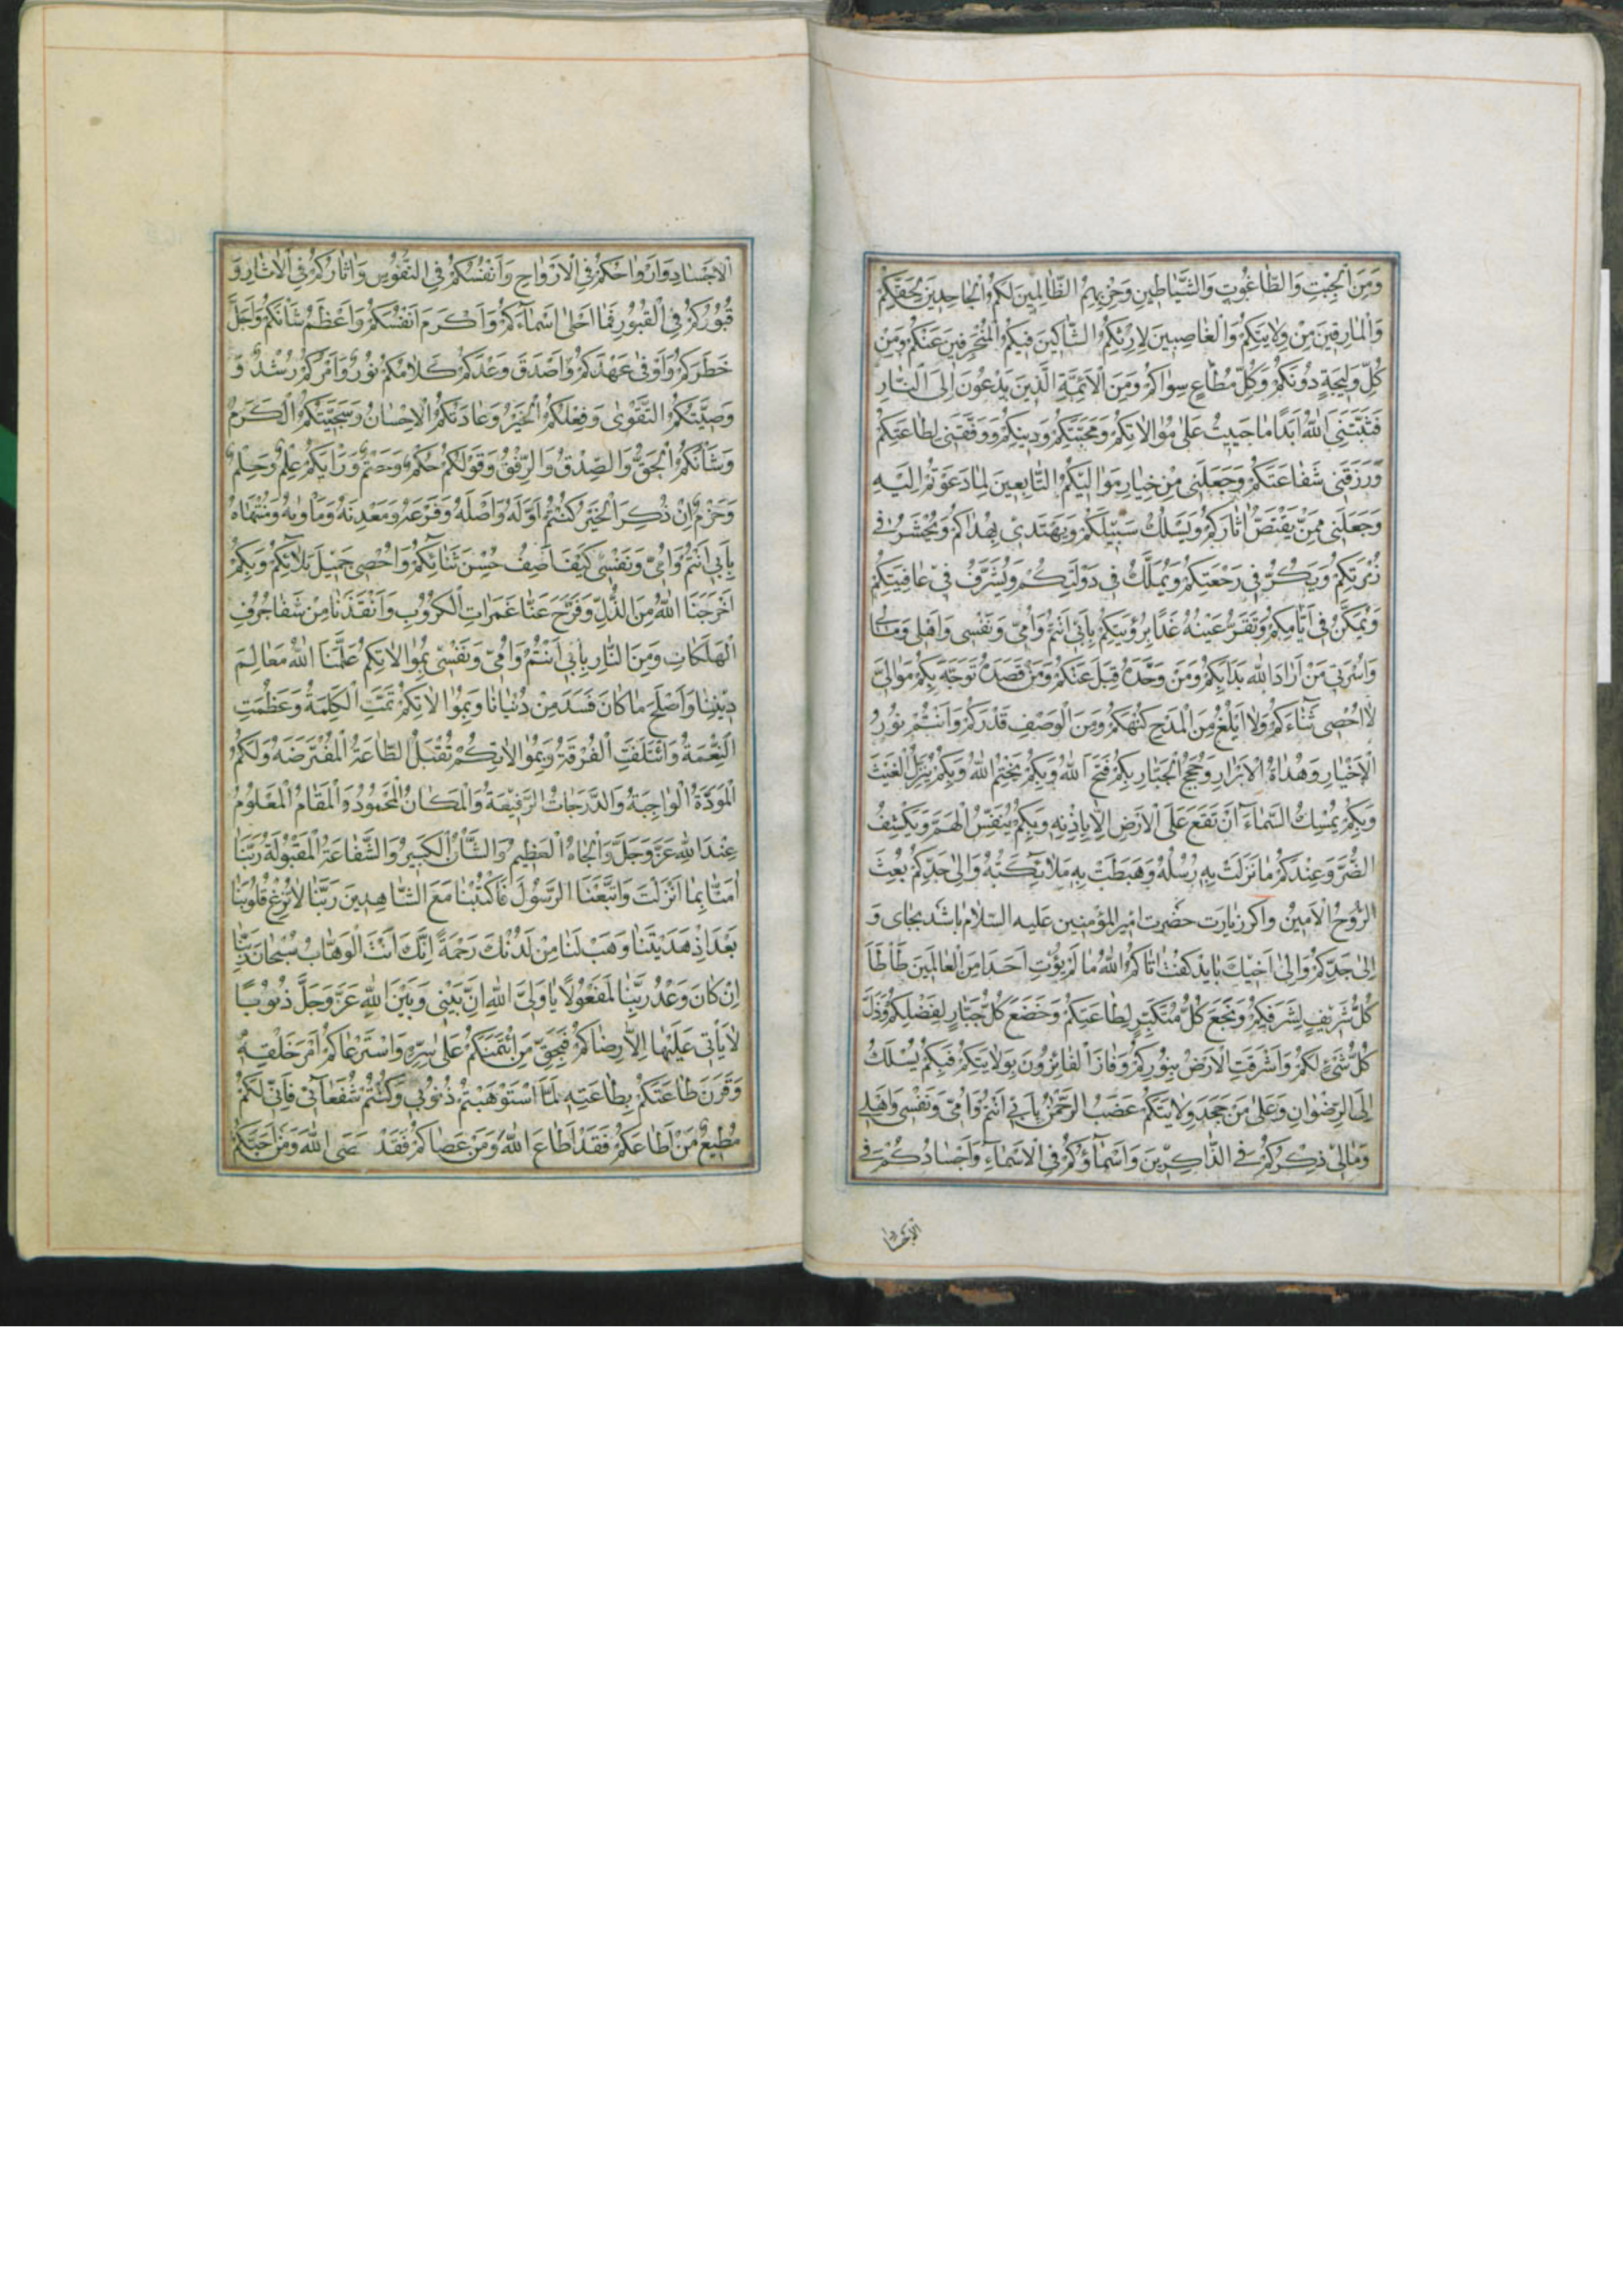 وَمِنَ الْجِبْتِ وَالطَّاغُوتِ وَالشَّيَاطِينِ وَحِزْبِهِمُ الظَّالِمِينَ لَكُمْ وَالْجَاحِدِينَ لِحَقِّكُمْ
وَالْمَارِقِينَ مِنْ وِلَايَتِكُمْ وَالْغَاصِبِينَ لِإِرْثِكُمْ الشَّاكِّينَ فِيكُمْ الْمُنْحَرِفِينَ عَنْكُمْ وَمِنْ
كُلِّ وَلِيجَةٍ دُونَكُمْ وَكُلِّ مُطَاعٍ سِوَاكُمْ وَمِنَ الْأَئِمَّةِ الَّذِينَ يَدْعُونَ إِلَى النَّارِ
فَثَبَّتَنِيَ اللَّهُ أَبَدًا مَا حَيِيتُ عَلَى مُوَالَاتِكُمْ وَمَحَبَّتِكُمْ وَدِينِكُمْ وَوَفَّقَنِي لِطَاعَتِكُمْ
وَرَزَقَنِي شَفَاعَتَكُمْ وَجَعَلَنِي مِنْ خِيَارِ مَوَالِيكُمْ التَّابِعِينَ لِمَا دَعَوْتُمْ إِلَيْهِ
وَجَعَلَنِي مِمَّنْ يَقْتَصُّ آثَارَكُمْ وَيَسْلُكُ سَبِيلَكُمْ وَيَهْتَدِي بِهُدَاكُمْ وَيُحْشَرُ فِي
زُمْرَتِكُمْ وَيَكُرُّ فِي رَجْعَتِكُمْ وَيُمَلَّكُ فِي دَوْلَتِكُمْ وَيُشَرَّفُ فِي عَافِيَتِكُمْ
وَيُمَكَّنُ فِي أَيَّامِكُمْ وَتَقَرُّ عَيْنُهُ غَدًا بِرُؤْيَتِكُمْ بِأَبِي أَنْتُمْ وَأُمِّي وَنَفْسِي وَأَهْلِي وَمَالِي
وَأُسْرَتِي مَنْ أَرَادَ اللَّهَ بَدَأَ بِكُمْ وَمَنْ وَحَّدَهُ قَبِلَ عَنْكُمْ وَمَنْ قَصَدَهُ تَوَجَّهَ بِكُمْ مَوَالِيَّ
لَا أُحْصِي ثَنَاءَكُمْ وَلَا أَبْلُغُ مِنَ الْمَدْحِ كُنْهَكُمْ وَمِنَ الْوَصْفِ قَدْرَكُمْ وَأَنْتُمْ نُورُ
الْأَخْيَارِ وَهُدَاةُ الْأَبْرَارِ وَحُجَجُ الْجَبَّارِ بِكُمْ فَتَحَ اللَّهُ وَبِكُمْ يَخْتِمُ اللَّهُ وَبِكُمْ يُنَزِّلُ الْغَيْثَ
وَبِكُمْ يُمْسِكُ السَّمَاءَ أَنْ تَقَعَ عَلَى الْأَرْضِ إِلَّا بِإِذْنِهِ وَبِكُمْ يُنَفِّسُ الْهَمَّ وَيَكْشِفُ
الضُّرَّ وَعِنْدَكُمْ مَا نَزَلَتْ بِهِ رُسُلُهُ وَهَبَطَتْ بِهِ مَلَائِكَتُهُ وَإِلَى جَدِّكُمْ بُعِثَ
الرُّوحُ الْأَمِينُ واگر زيارت حضرت امير المؤمنين عليه السلام باشد بجاى وَ
إِلَى جَدِّكُمْ وَإِلَى أَخِيكَ بايد گفت آتَاكُمُ اللَّهُ مَا لَمْ يُؤْتِ أَحَدًا مِنَ الْعَالَمِينَ طَأْطَأَ
كُلُّ شَرِيفٍ لِشَرَفِكُمْ وَنَجَعَ كُلُّ مُتَكَبِّرٍ لِطَاعَتِكُمْ وَخَضَعَ كُلُّ جَبَّارٍ لِفَضْلِكُمْ وَذَلَّ
كُلُّ شَيْءٍ لَكُمْ وَأَشْرَقَتِ الْأَرْضُ بِنُورِكُمْ وَفَازَ الْفَائِزُونَ بِوَلَايَتِكُمْ فَبِكُمْ يُسْلَكُ
إِلَى الرِّضْوَانِ وَعَلَى مَنْ جَحَدَ وِلَايَتَكُمْ غَضَبُ الرَّحْمٰنِ بِأَبِي أَنْتُمْ وَأُمِّي وَنَفْسِي وَأَهْلِي
وَمَالِي ذِكْرُكُمْ فِي الذَّاكِرِينَ وَأَسْمَاؤُكُمْ فِي الْأَسْمَاءِ وَأَجْسَادُكُمْ فِي
الْأَجْسَادِ وَأَرْوَاحُكُمْ فِي الْأَرْوَاحِ وَأَنْفُسُكُمْ فِي النُّفُوسِ وَآثَارُكُمْ فِي الْآثَارِ وَ
قُبُورُكُمْ فِي الْقُبُورِ فَمَا أَحْلَى أَسْمَاءَكُمْ وَأَكْرَمَ أَنْفُسَكُمْ وَأَعْظَمَ شَأْنَكُمْ وَأَجَلَّ
خَطَرَكُمْ وَأَوْفَى عَهْدَكُمْ وَأَصْدَقَ وَعْدَكُمْ كَلَامُكُمْ نُورٌ وَأَمْرُكُمْ رُشْدٌ وَ
وَصِيَّتُكُمُ التَّقْوَى وَفِعْلُكُمُ الْخَيْرُ وَعَادَتُكُمُ الْإِحْسَانُ وَسَجِيَّتُكُمُ الْكَرَمُ
وَشَأْنُكُمُ الْحَقُّ وَالصِّدْقُ وَالرِّفْقُ وَقَوْلُكُمْ حُكْمٌ وَحَتْمٌ وَرَأْيُكُمْ عِلْمٌ وَحِلْمٌ
وَحَزْمٌ إِنْ ذُكِرَ الْخَيْرُ كُنْتُمْ أَوَّلَهُ وَأَصْلَهُ وَفَرْعَهُ وَمَعْدِنَهُ وَمَأْوَاهُ وَمُنْتَهَاهُ
بِأَبِي أَنْتُمْ وَأُمِّي وَنَفْسِي كَيْفَ أَصِفُ حُسْنَ ثَنَائِكُمْ وَأُحْصِي جَمِيلَ بَلَائِكُمْ وَبِكُمْ
أَخْرَجَنَا اللَّهُ مِنَ الذُّلِّ وَفَرَّجَ عَنَّا غَمَرَاتِ الْكُرُوبِ وَأَنْقَذَنَا مِنْ شَفَا جُرُفِ
الْهَلَكَاتِ وَمِنَ النَّارِ بِأَبِي أَنْتُمْ وَأُمِّي وَنَفْسِي بِمُوَالَاتِكُمْ عَلَّمَنَا اللَّهُ مَعَالِمَ
دِينِنَا وَأَصْلَحَ مَا كَانَ فَسَدَ مِنْ دُنْيَانَا وَبِمُوَالَاتِكُمْ تَمَّتِ الْكَلِمَةُ وَعَظُمَتِ
النِّعْمَةُ وَائْتَلَفَتِ الْفُرْقَةُ وَبِمُوَالَاتِكُمْ تُقْبَلُ الطَّاعَةُ الْمُفْتَرَضَةُ وَلَكُمُ
الْمَوَدَّةُ الْوَاجِبَةُ وَالدَّرَجَاتُ الرَّفِيعَةُ وَالْمَكَانُ الْمَحْمُودُ وَالْمَقَامُ الْمَعْلُومُ
عِنْدَ اللَّهِ عَزَّ وَجَلَّ وَالْجَاهُ الْعَظِيمُ وَالشَّأْنُ الْكَبِيرُ وَالشَّفَاعَةُ الْمَقْبُولَةُ رَبَّنَا
آمَنَّا بِمَا أَنْزَلْتَ وَاتَّبَعْنَا الرَّسُولَ فَاكْتُبْنَا مَعَ الشَّاهِدِينَ رَبَّنَا لَا تُزِغْ قُلُوبَنَا
بَعْدَ إِذْ هَدَيْتَنَا وَهَبْ لَنَا مِنْ لَدُنْكَ رَحْمَةً إِنَّكَ أَنْتَ الْوَهَّابُ سُبْحَانَ رَبِّنَا
إِنْ كَانَ وَعْدُ رَبِّنَا لَمَفْعُولًا يَا وَلِيَّ اللَّهِ إِنَّ بَيْنِي وَبَيْنَ اللَّهِ عَزَّ وَجَلَّ ذُنُوبًا
لَا يَأْتِي عَلَيْهَا إِلَّا رِضَاكُمْ فَبِحَقِّ مَنِ ائْتَمَنَكُمْ عَلَى سِرِّهِ وَاسْتَرْعَاكُمْ أَمْرَ خَلْقِهِ
وَقَرَنَ طَاعَتَكُمْ بِطَاعَتِهِ لَمَّا اسْتَوْهَبْتُمْ ذُنُوبِي وَكُنْتُمْ شُفَعَائِي فَإِنِّي لَكُمْ
مُطِيعٌ مَنْ أَطَاعَكُمْ فَقَدْ أَطَاعَ اللَّهَ وَمَنْ عَصَاكُمْ فَقَدْ عَصَى اللَّهَ وَمَنْ أَحَبَّكُمْ